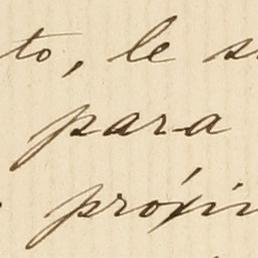 to, le s
para
próxi